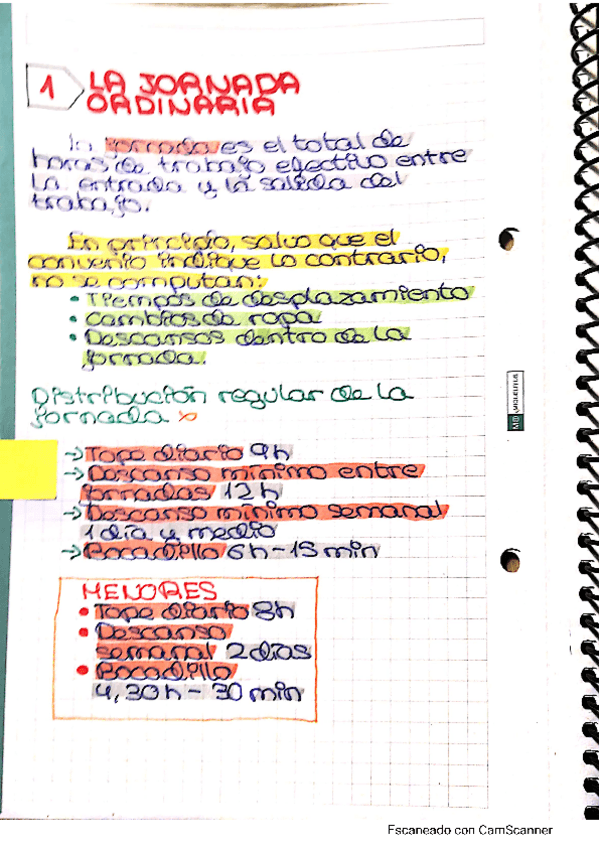 1 LA JORNADA
ORDINARIA
la jornada es el total de
horas de trabajo efectivo entre
la entrada y la salida del
trabajo.
En principio, salvo que el
convenio indique lo contrario,
no se computan:
• Tiempos de desplazamiento
• Cambios de ropa
• Descansos dentro de la
jornada.
Distribución regular de la
jornada
→ Tope diario 9h
→ Descanso mínimo entre
jornadas 12h
→ Descanso mínimo semanal
1 día y medio
→ Bocadillo 6h-15 min
MENORES
• Tope diario 8h
• Descanso
semanal 2 días
• Bocadillo
4,30h - 30 min
MIQUELRIUS
Escaneado con CamScanner